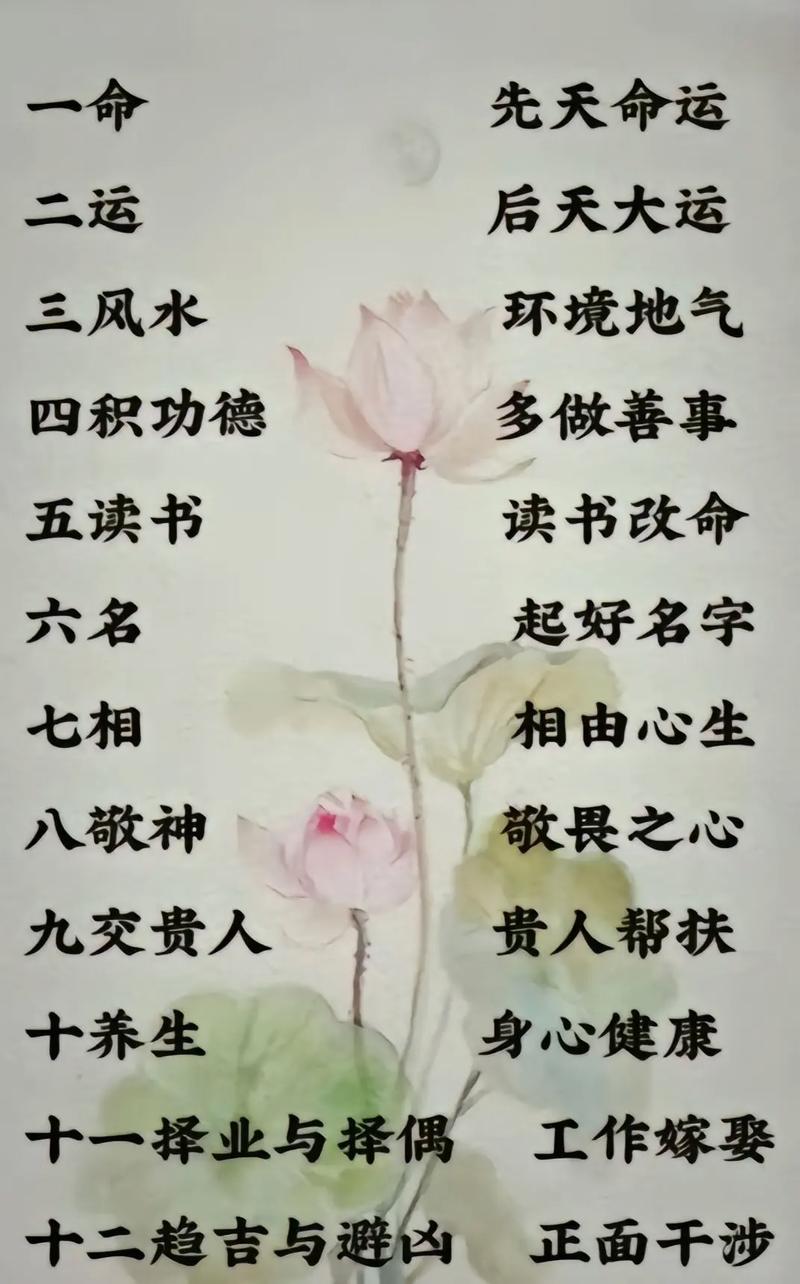 一命 先天命运
二运 后天大运
三风水 环境地气
四积功德 多做善事
五读书 读书改命
六名 起好名字
七相 相由心生
八敬神 敬畏之心
九交贵人 贵人帮扶
十养生 身心健康
十一择业与择偶 工作嫁娶
十二趋吉与避凶 正面干涉